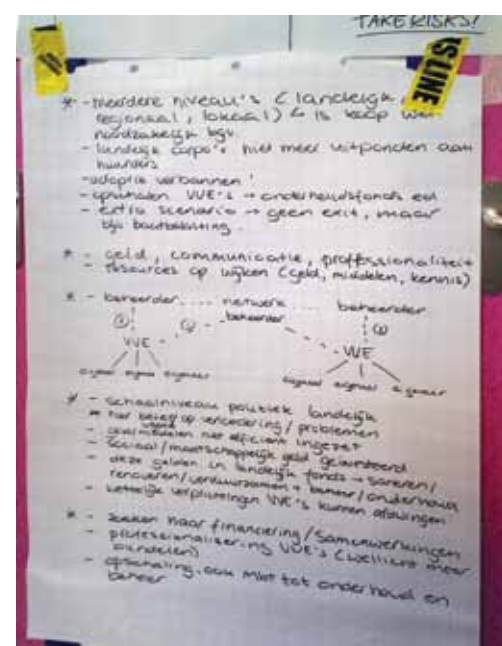 TAKE RISKS!
IS LINE
* - meerdere niveau's (landelijk,
regionaal, lokaal) is koop wel
noodzakelijk bijv.
- landelijk corpo's niet meer uitponden aan
huurders
- adoptie verbannen!
- opschalen VVE's → onderhoudsfonds
- extra scenario → geen exit, maar
bijv
* - geld, communicatie, professionaliteit
- resources op wijken (geld, middelen, kennis)
* - beheerder .... netwerk beheerder
beheerder
VVE VVE
eigenaar eigenaar eigenaar eigenaar eigenaar eigenaar
* - schaalniveau politiek landelijk
beleid op veroudering / problemen
middelen niet efficient ingezet
- sociaal / maatschappelijk geld geïnvesteerd
- deze gelden in landelijk fonds → saneren /
renoveren / verduurzamen + beheer / onderhoud
- wettelijke verplichtingen VVE's kunnen afdwingen
* - zoeken naar financiering / samenwerkingen
- professionalisering VVE's (wellicht meer
bundelen)
- opschaling, ook mbt tot onderhoud en
beheer